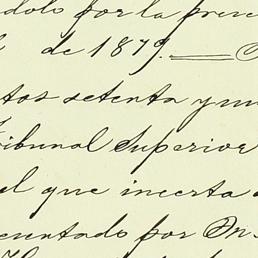 dolo por la prese
de 1879.
tos setenta y nu
ribunal Superior
el que incerta
esentado por Dn.